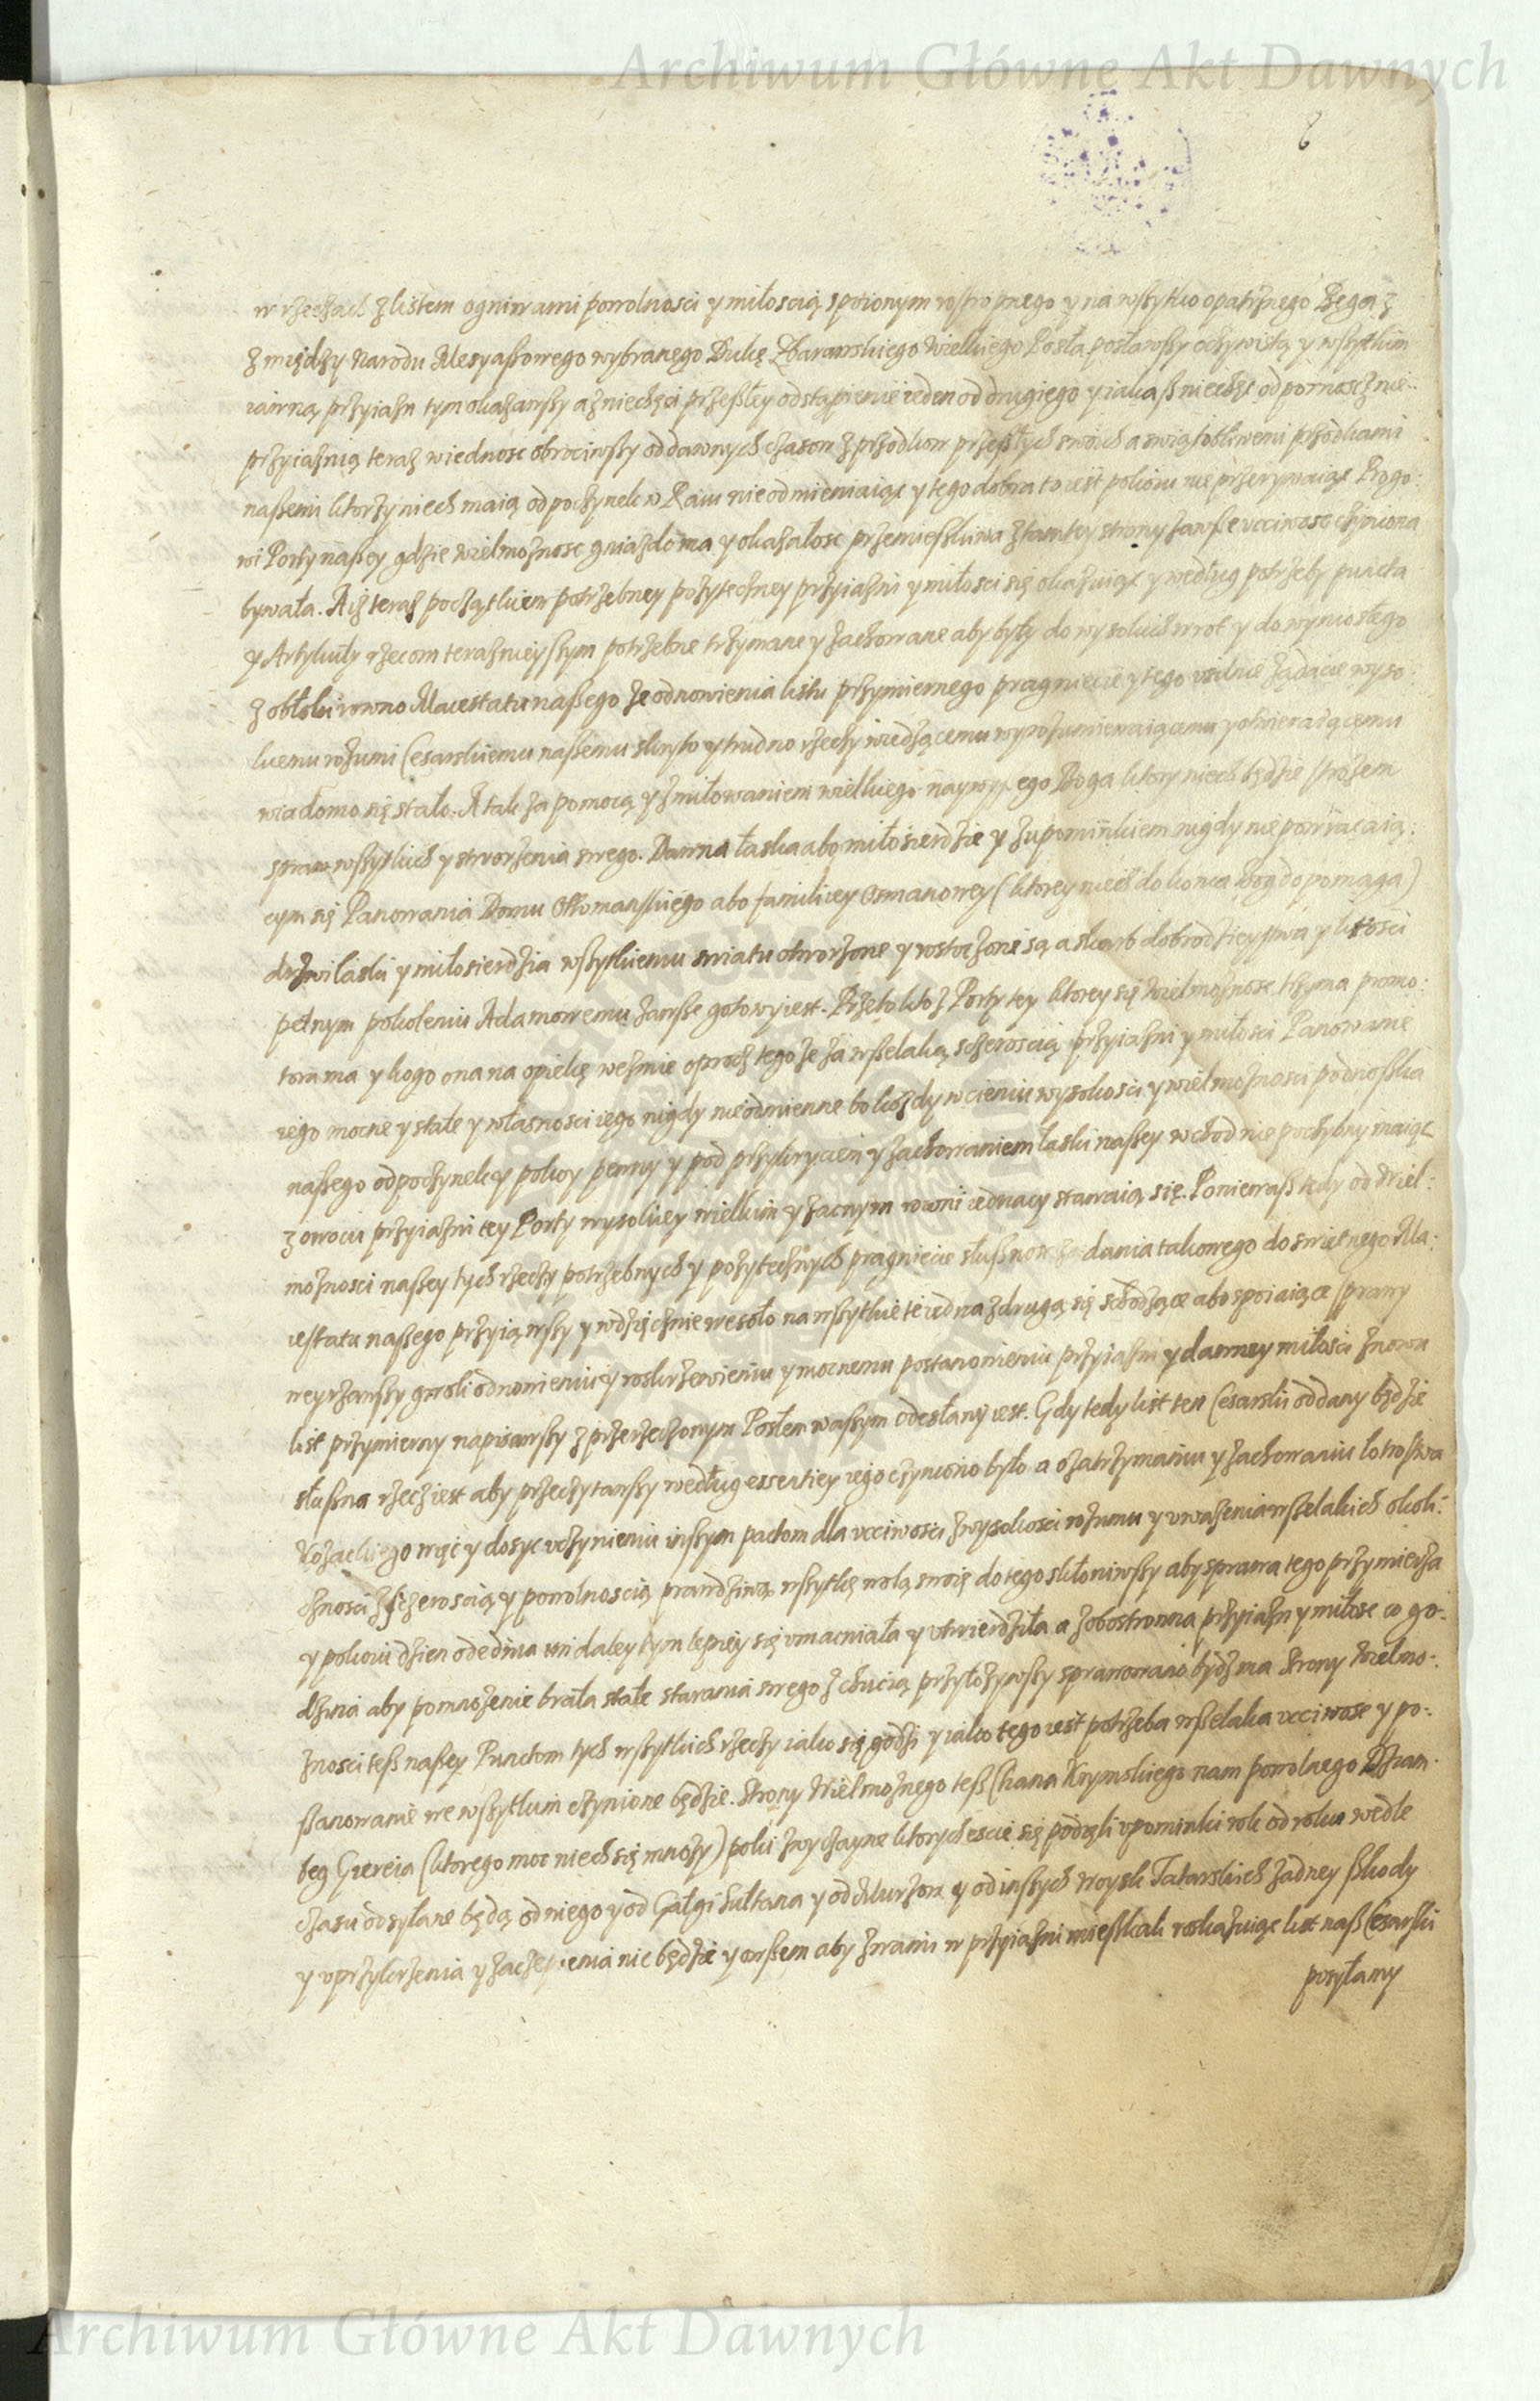 Archiwum Główne Akt Dawnych
6
w rzeczach z listem ogniwami powolnosci y miłoscią spoionym rostropnego y na wszytko opatrznego Bega z
z między Narodu Mesyaszowego wybranego Dukę Zbarawskiego wielkiego Posła posławszy oczywistą y wszytkim
iawną przyiazn tym okazawszy a z niechęci przeszłey odstąpienie ieden od drugiego y iakasz niechęc odpornosc z nie:
przyiaznią teraz w iednosc obrociwszy od dawnych czasow z przodkow przeszłych swoich a swiątobliwemi przodkami
naszemi ktorzy niech maią odpoczynek w Raiu nie odmieniaiąc y tego dobra to iest pokoiu nie przerywaiąc Progo:
wi Porty naszey gdzie wielmoznosc gniazdo ma y okazałosc przemieszkiwa z tamtey strony zawsze vcciwosc czyniona
bywała. A iz teraz początkiem potrzebney pozyteczney przyiazni y miłosci się okazuiąc y według potrzeby puncta
y Artykuły rzecom teraznieyszym potrzebne trzymane y zachowane aby były do wysokich wrot y do wyniosłego
z obłoki rowno Maiestatu naszego ze odnowienia listu przymiernego pragniecie y tego usilnie ządacie wyso:
kiemu rozumi Cesarskiemu naszemu skryto y trudno rzeczy wiedzącemu wyrozumiewaiącemu y otwieraiącemu
wiadomo się stało. A tak za pomocą y zmiłowaniem wielkiego naywyz ego Boga ktory niech będzie strozem
spraw wszytkich y stworzenia swego. Dawna łaska abo miłosierdzie y z upominkiem nigdy nie powracaią:
cym się Panowania Domu Ottomanskiego abo familiey Osmanowey (ktorey niech do konca Bog dopomaga)
drzwi łaski y miłosierdzia wszytkiemu swiatu otworzone y roztoczone są a skarb dobrodzieystwa y litosci
pełnym pokoleniu Adamowemu zawsze gotowy iest. Przeto kto z Porty tey ktorey się wielmoznosc trzyma promo:
tora ma y kogo ona na opiekę wezmie oproch tego ze za wszelaką sczeroscią przyiazni y miłosci Panowanie
iego mocne y stałe y własnosci iego nigdy nieodmienne bo kozdy w cieniu wysokosci y wielmoznosci podnoszka
naszego odpoczynek y pokoy pewny y pod przykryciem y zachowaniem łaski naszey wchod nie pochybny maiąc
z owocu przyiazni tey Porty wysokiey wielkim y zacnym rowni iednacy stawaią się. Poniewasz tedy od wiel:
moznosci naszey tych rzeczy potrzebnych y pozytecznych pragniecie słusznosc dania takowego do swietnego Ma:
iestatu naszego przyiąwszy y wdzięcznie wesoło na wszytkie te iedna z drugą się schodzące abo spoiaiące sprawy
weyrzawszy gwoli odnowieniu y roskrzewieniu y mocnemu postanowieniu przyiazni y dawney miłosci znowu
list przymierny napisawszy z przerzeczonym Posłem waszym odesłany iest. Gdy tedy list ten Cesarski oddany będzie
słuszna rzecz iest aby przeczytawszy według essentiey iego czyniono było a o zatrzymaniu y zachowaniu łotrostwa
Kozackiego więc y dosyc vczynieniu inszym pactom dla vcciwosci z wysokosci rozumu y vwazenia wszelakich okoli:
cznosci z szczeroscią y powolnoscią prawdziwą wszytkę wolą swoię do tego skłoniwszy aby sprawa tego przymierza
y pokoiu dzien ode dnia im daley tym lepiey się vmacniała y vtwierdziła a z obostronna przyiazn y miłosc co go:
dzina aby pomnozenie brała stałe starania swego z chucią przyłozywszy sprawowano bydz ma Strony Wielmo:
znosci tesz naszey Punctom tych wszytkich rzeczy iako się godzi y iako tego iest potrzeba wszelaka vcciwosc y po:
szanowanie we wszytkim czynione będzie. Strony Wielmoznego tesz Chana Krymskiego nam powolnego Dzan:
beg Giereia (ktorego moc niech się mnozy) poki zwyczayne ktorychescie się podięli vpominki rok od roku wedle
czasu odsyłane będą od niego y od Gałgi Sułtana y od Murzow y od inszych woysk Tatarskich zadney szkody
y vprzykrzenia y zaczepienia nie będzie y owszem aby z wami w przyiazni mieszkali roskazuiąc list nasz Cesarski
posyłamy
Archiwum Główne Akt Dawnych